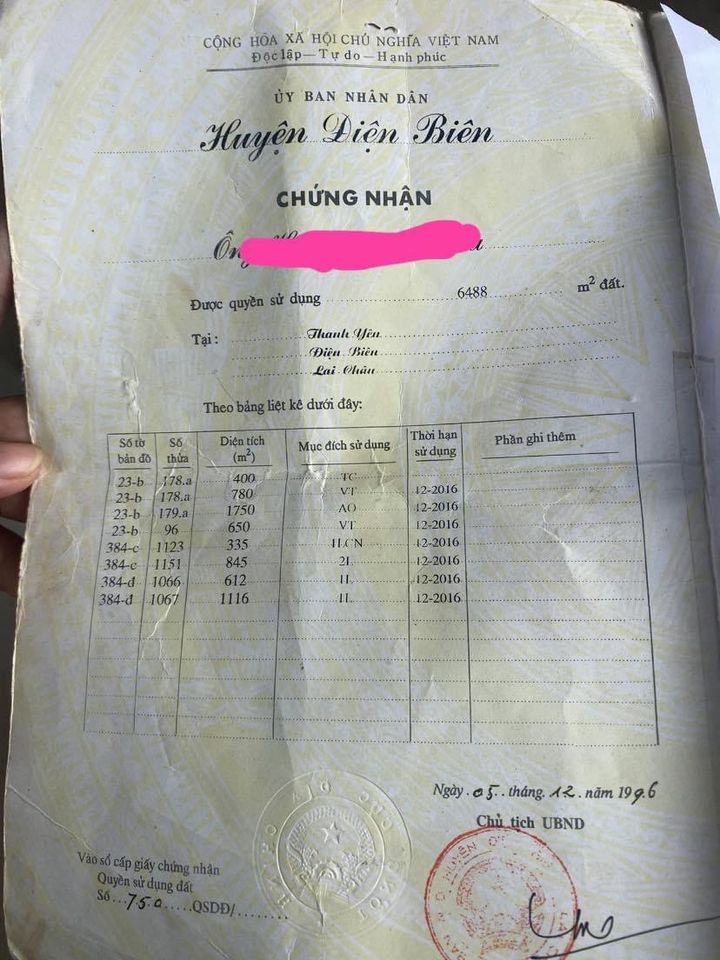 CỘNG HÒA XÃ HỘI CHỦ NGHĨA VIỆT NAM
Độc lập — Tự do — Hạnh phúc
ỦY BAN NHÂN DÂN
Huyện Điện Biên
CHỨNG NHẬN
Ông
Được quyền sử dụng 6488 m² đất.
Tại: Thanh Yên
Điện Biên
Lai Châu
Theo bảng liệt kê dưới đây:
Số tờ bản đồ Số thửa Diện tích (m²) Mục đích sử dụng Thời hạn sử dụng Phần ghi thêm
23-b 178.a 400 TC
23-b 178.a 780 VT 12-2016
23-b 179.a 1750 AO 12-2016
23-b 96 650 VT 12-2016
384-c 1123 335 1LCN 12-2016
384-c 1151 845 2L 12-2016
384-d 1066 612 1L 12-2016
384-d 1067 1116 1L 12-2016
Ngày 05 tháng 12 năm 1996
Chủ tịch UBND
Vào sổ cấp giấy chứng nhận
Quyền sử dụng đất
Số 750 QSDĐ/